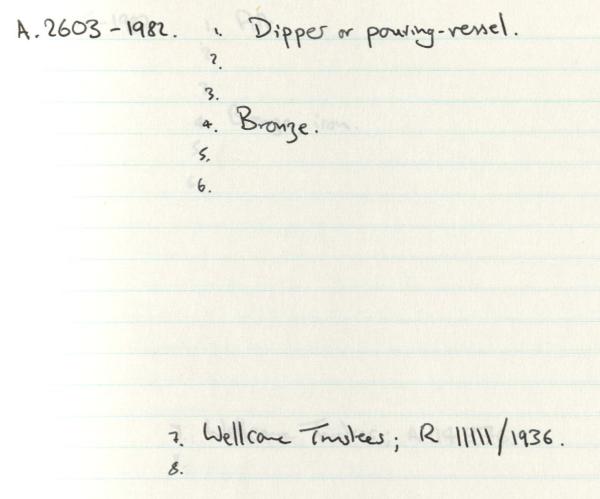 A.2603-1982. 1. Dipper or pouring-vessel.
2.
3.
4. Bronze.
5.
6.
7. Wellcome Trustees; R 11111/1936.
8.